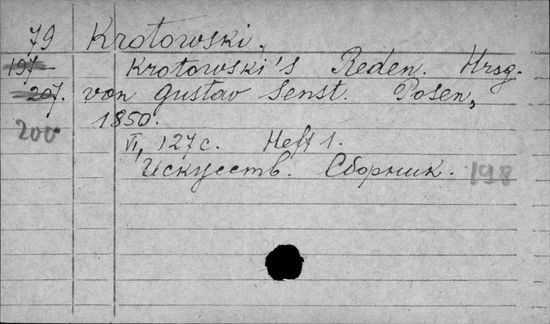 79 Krotowski.
197 Krotowski's Reden. Hrsg.
207. von Gustav Senst. Posen,
200 1850.
VI, 127 с. Heft 1.
Искусств. Сборник. 198